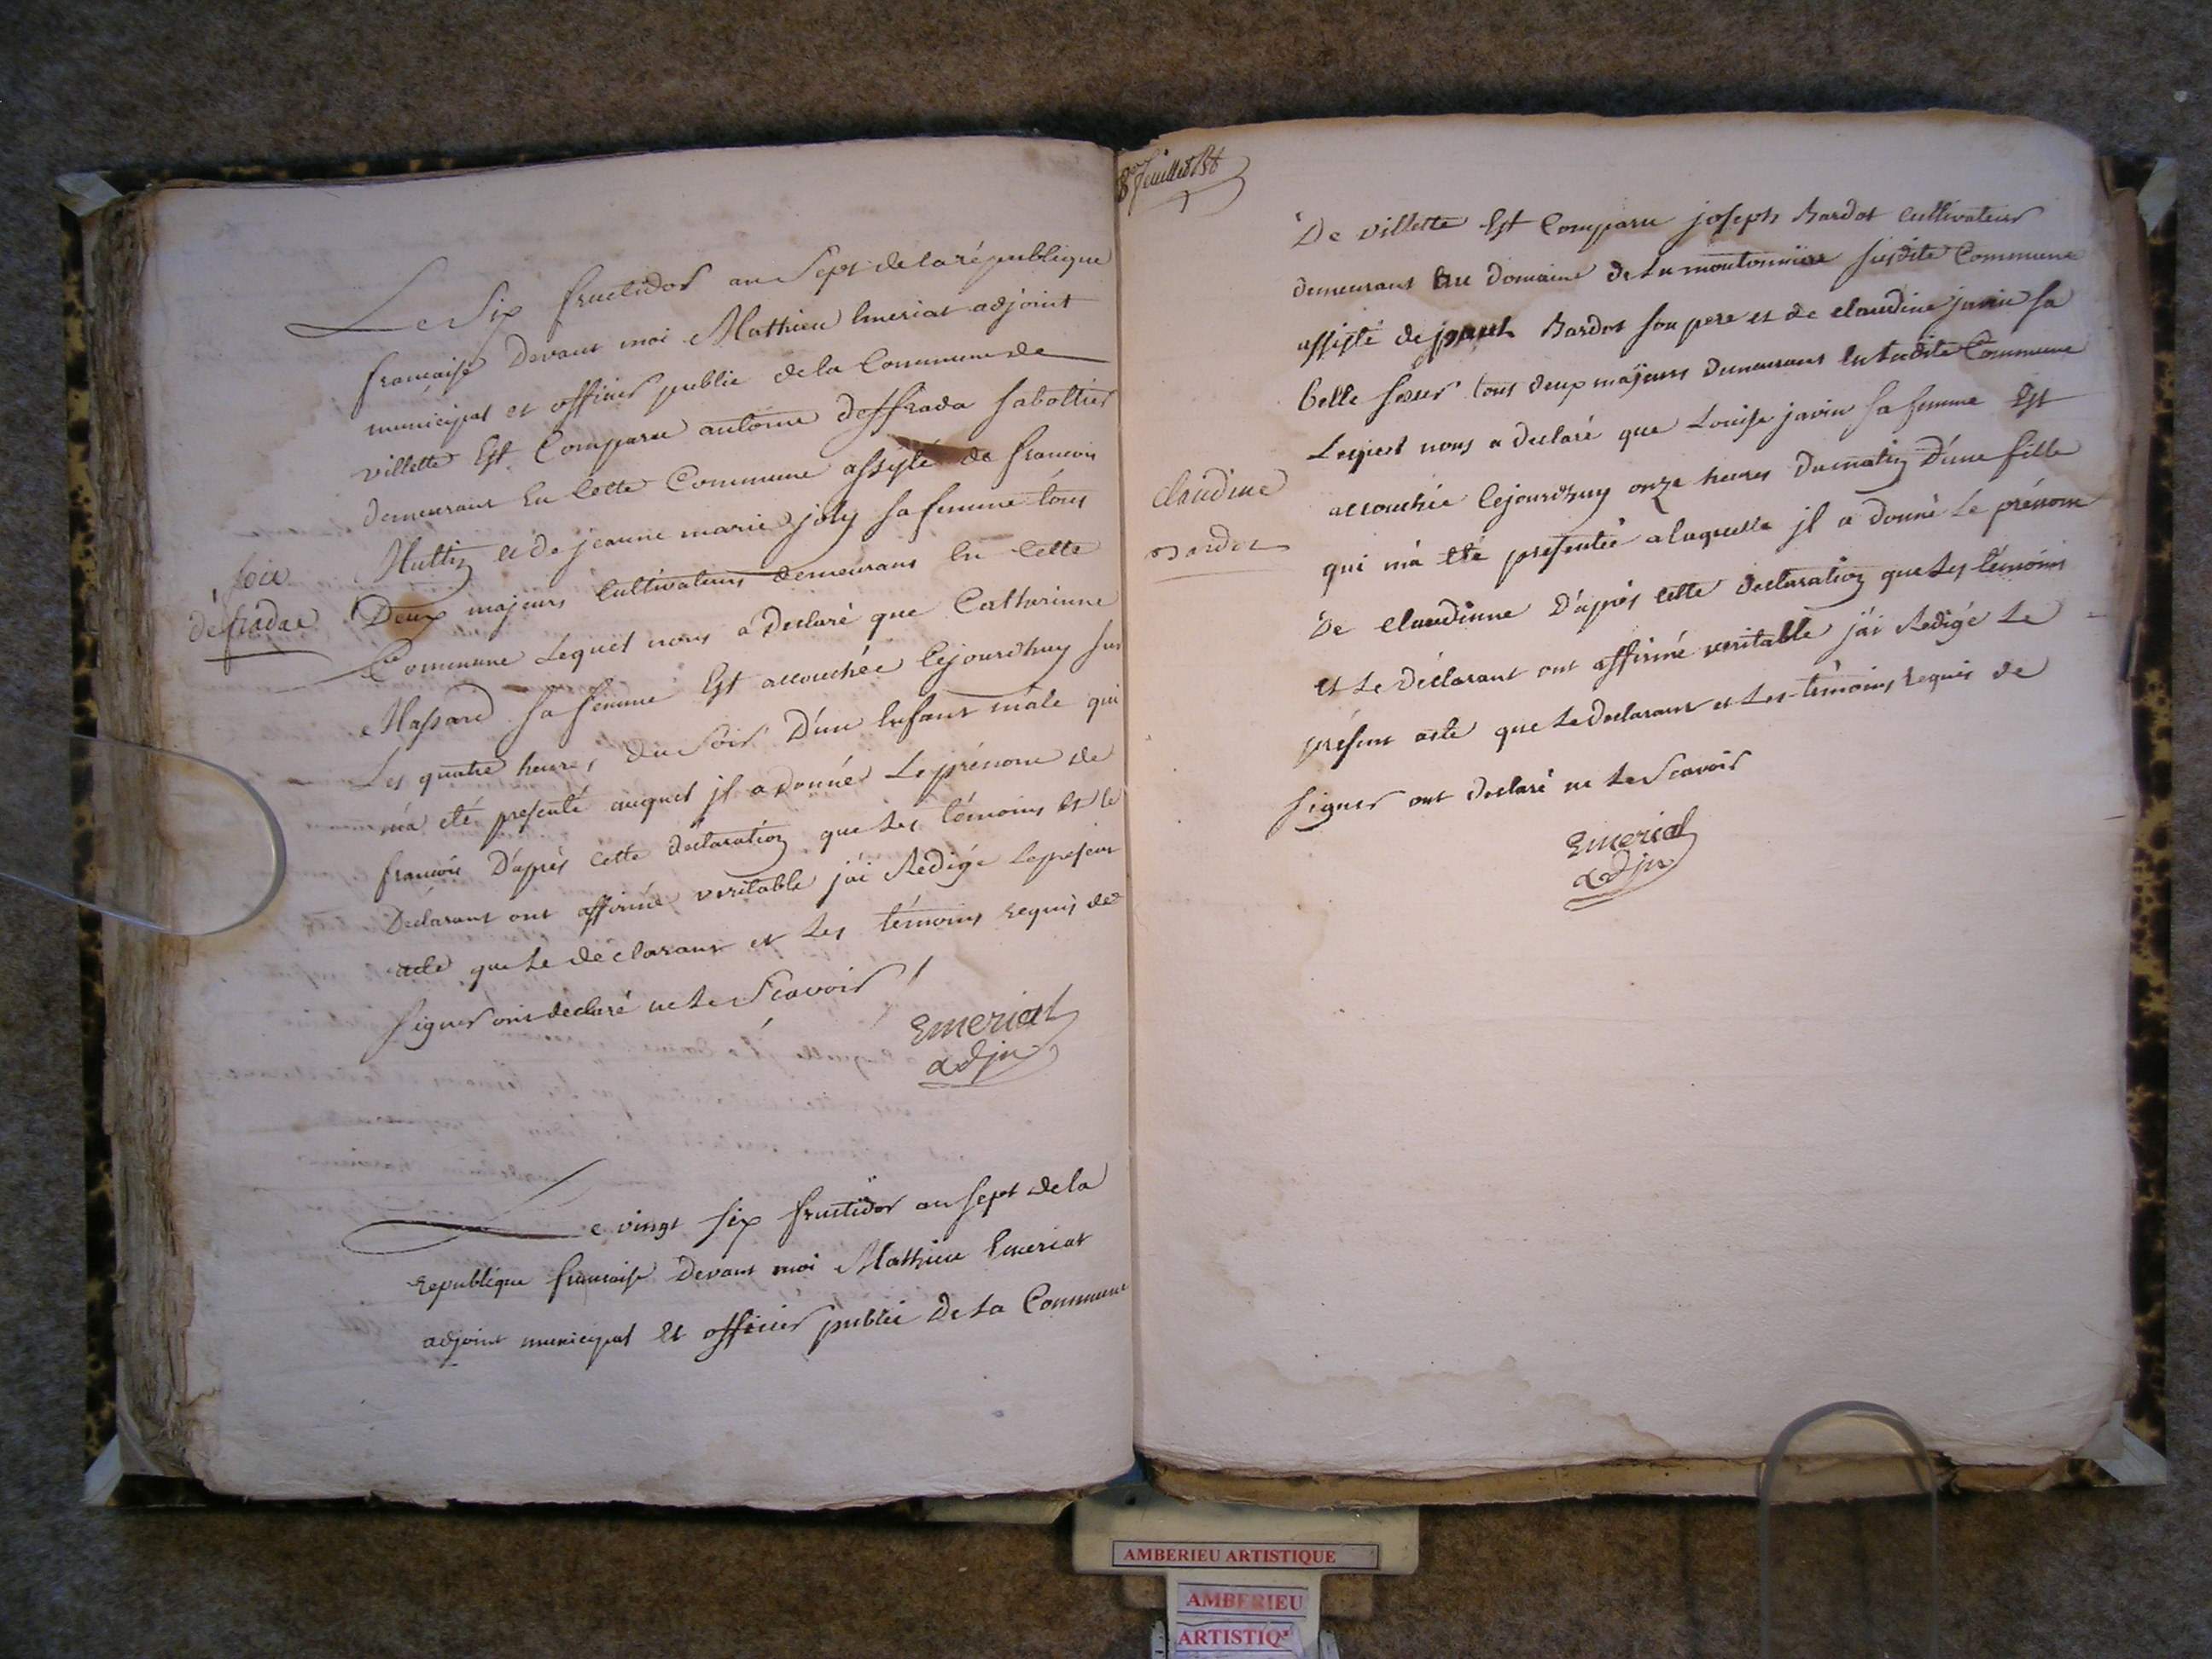 Le Six fructidor an Sept de la république
francaise Devant moi Mathieu Emeriat adjoint
municipal et officier public de la Commune de
villette Est Comparu antoine Deffrada sabottier
demeurant En Cette Commune assisté de francois
Muttin et de jeanne marie joly sa femme tous
Deux majeurs Cultivateurs demeurans En Cette
Commune Lequel nous a Declaré que Catherinne
Massard sa femme Est accouchée Cejourdhuy sur
Les quatre heures Du Soir D'un Enfant mâle qui
m'a été presenté auquel jl a donnér Le prénom de
francois D'après Cette declaration que Les témoins Et le
Déclarant ont affirmé veritable j'ai Rédigé Le present
acte que Le déclarant et Les témoins requis de
signer ont declaré ne Le Scavoir
Emeriat
adjn
defradae
Le vingt six fructidor an sept de la
republique francaise Devant moi Mathieu Emeriat
adjoint municipal Et officier public De La Commune
8e feuillet
De villette Est Comparu joseph Bardot cultivateur
demeurant au Domaine de La moutonniere susdite Commune
assisté de Bardot son pere et de claudine javin sa
belle soeur tous deux majeurs demeurans En Ladite Commune
Lequel nous a declaré que Louise javin sa femme Est
accouchée Cejourdhuy onze heures du matin D'une fille
qui m'a été presentée a laquelle jl a donné Le prénom
De Claudinne D'après Cette declaration que Les témoins
et Le déclarant ont affirmé veritable j'ai Redigé Le =
présent acte que Le declarant et Les témoins requis de
signer ont declaré ne Le Scavoir
Emeriat
adjn
Claudine
Bardot
AMBERIEU ARTISTIQUE
AMBERIEU
ARTISTIQ